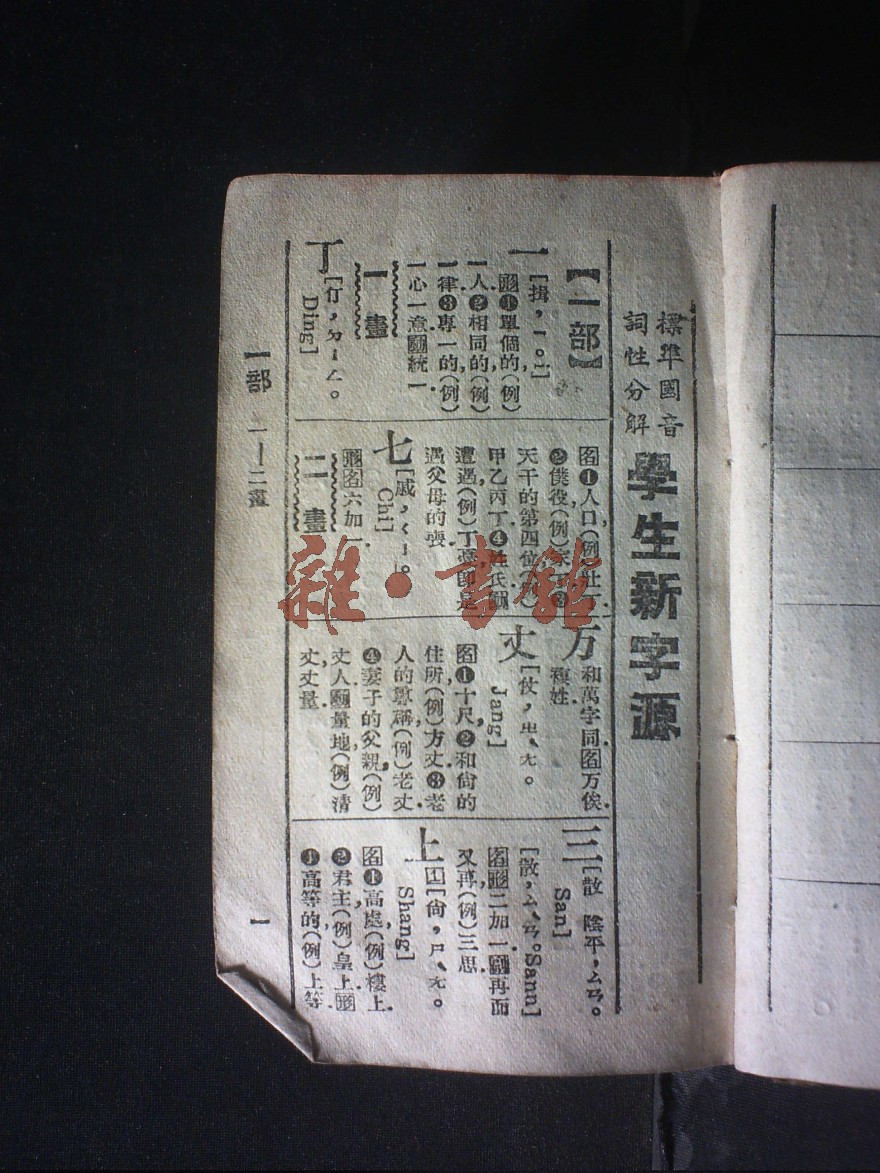 標準國音
詞性分解
學生新字源
【一部】
一[揖，ㄧ。i]
形❶單個的(例)
一人❷相同的(例)
一律❸專一的(例)
一心一意動統一
一畫
丁[仃，ㄉㄧㄥ。
Ding]
名❶人口(例)壯丁
❷僕役(例)家丁❸
天干的第四位(例)
甲乙丙丁❹姓氏動
遭遇(例)丁憂卽是
遇父母的喪
七[戚，ㄑㄧ。
Chi]
形名六加一
二畫
万 和萬字同名万俟
複姓
丈[仗，ㄓˋㄤ。
Jang]
名❶十尺❷和尙的
住所(例)方丈❸老
人的尊稱(例)老丈
❹妻子的父親(例)
丈人動量地(例)清
丈丈量
三[散 陰平，ㄙㄢ。
San]
[散，ㄙˋㄢ。Sann]
名形二加一副再而
又再(例)三思
上[尙，ㄕˋㄤ。
Shang]
名❶高處(例)樓上
❷君主(例)皇上形
❶高等的(例)上等
一部 一—二畫
一
雜·書館